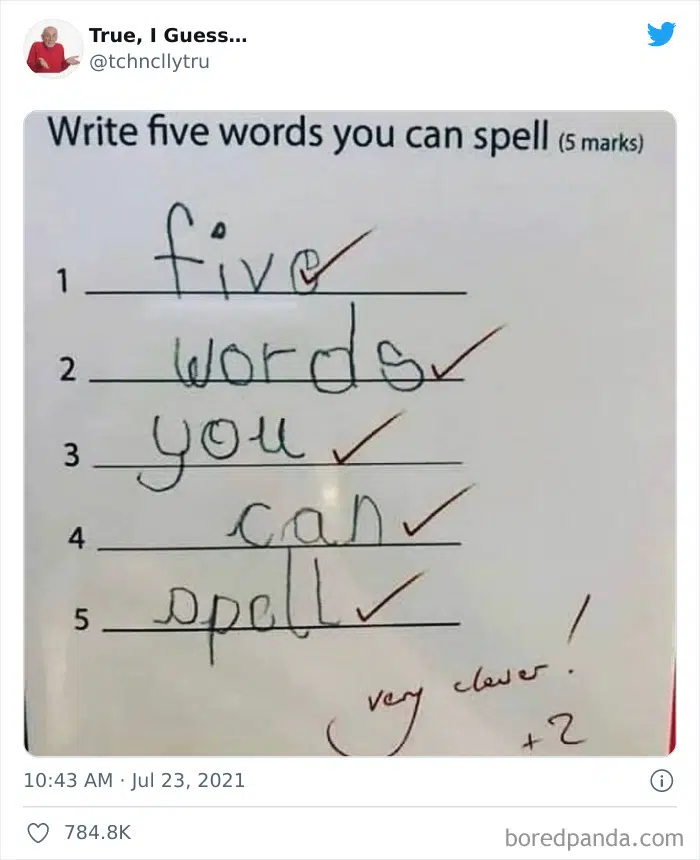 True, I Guess...
@tchncllytru
Write five words you can spell (5 marks)
1 five
2 words
3 you
4 can
5 spell
very clever!
+2
10:43 AM · Jul 23, 2021
784.8K
boredpanda.com